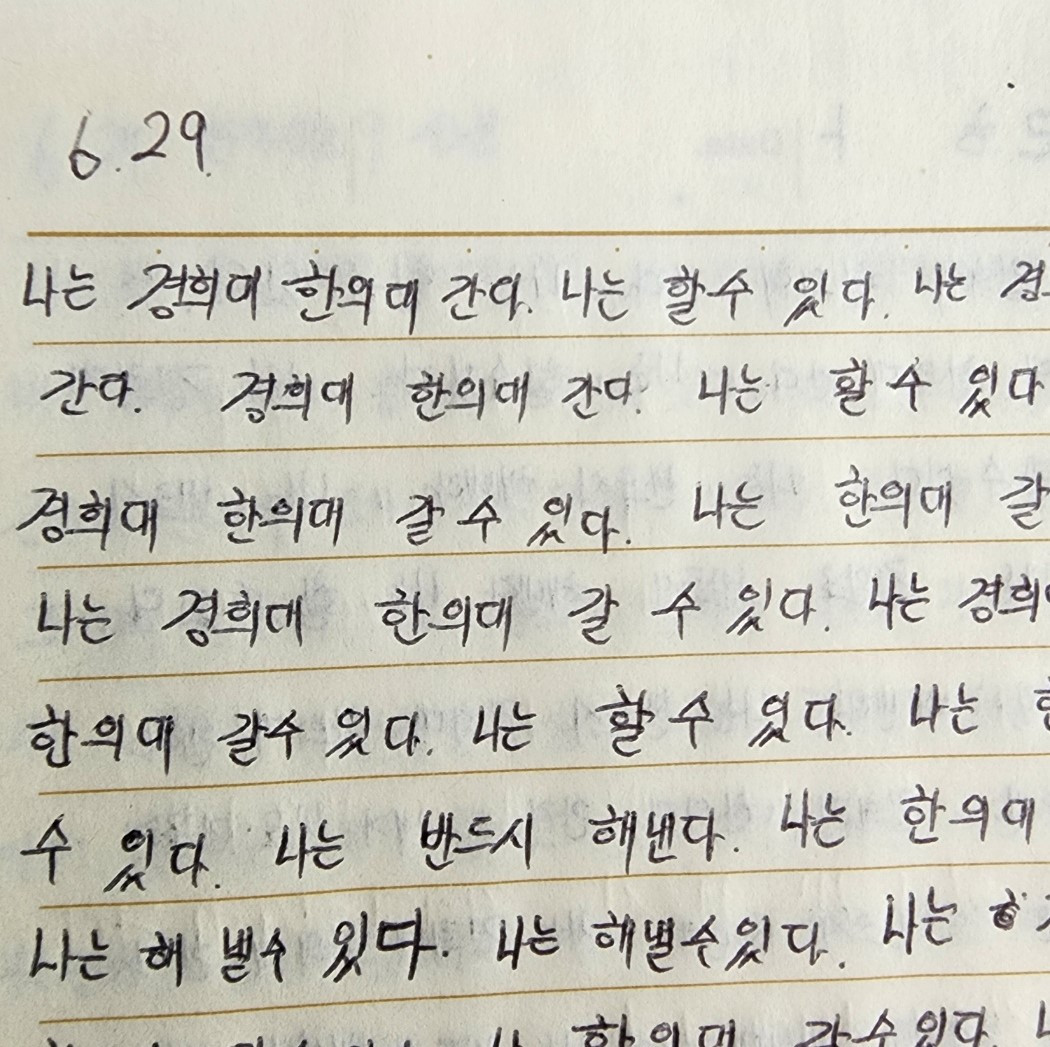 6.29.
나는 경희대 한의대 간다. 나는 할 수 있다. 나는
간다. 경희대 한의대 간다. 나는 할 수 있다
경희대 한의대 갈 수 있다. 나는 한의대 갈
나는 경희대 한의대 갈 수 있다. 나는 경희
한의대 갈수 있다. 나는 할 수 있다. 나는
수 있다. 나는 반드시 해낸다. 나는 한의대
나는 해 낼수 있다. 나는 해낼수있다. 나는
한의대 갈수있다.